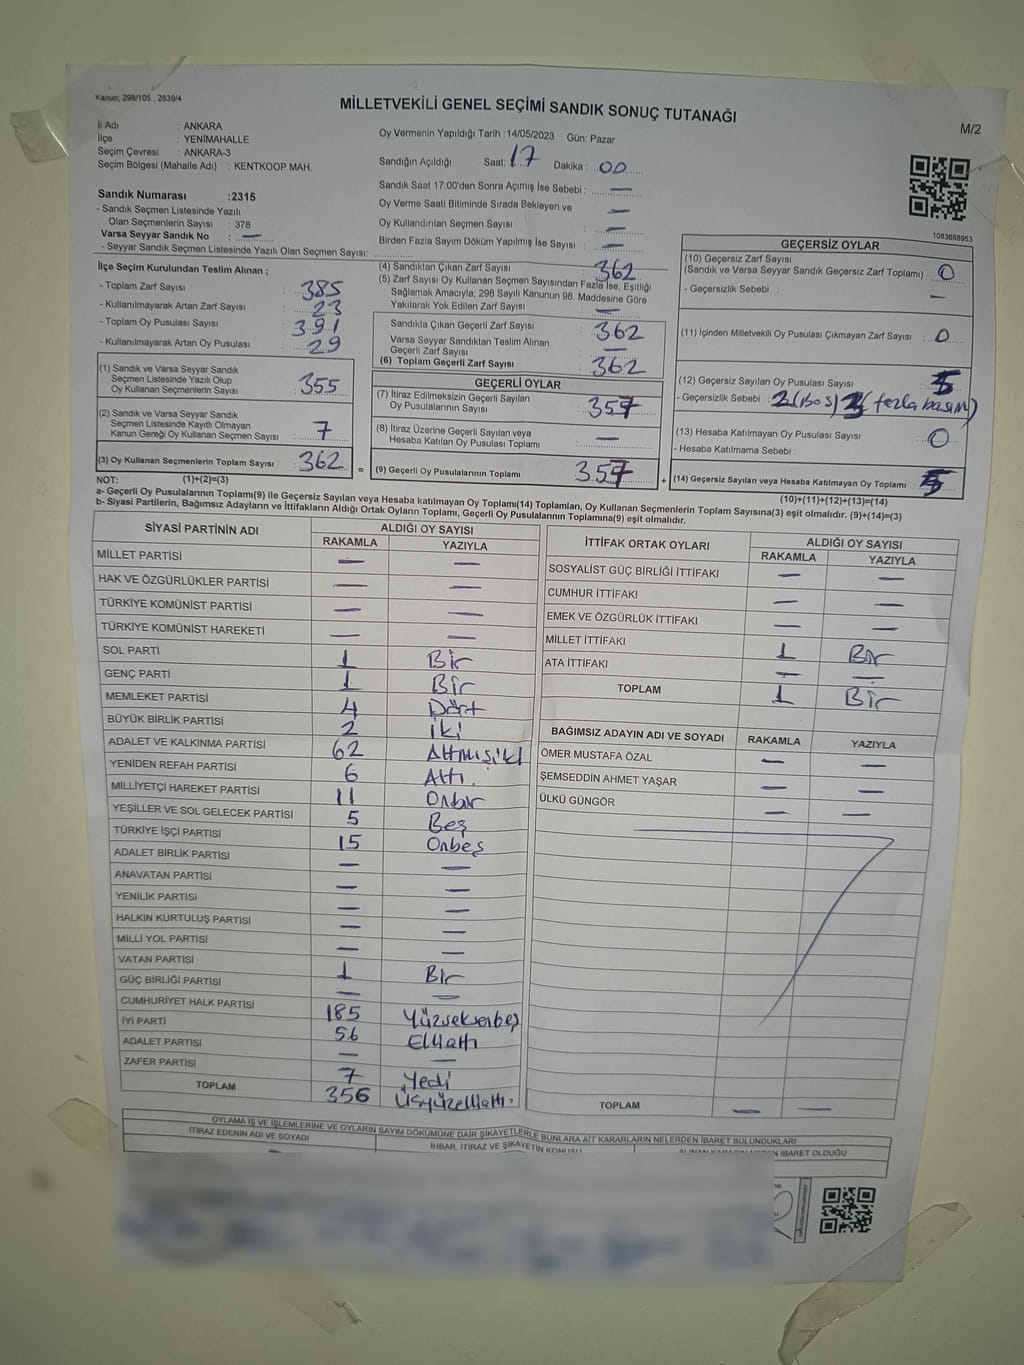 Kanun; 298/105 , 2839/4
MİLLETVEKİLİ GENEL SEÇİMİ SANDIK SONUÇ TUTANAĞI
M/2
İl Adı : ANKARA
İlçe : YENİMAHALLE
Seçim Çevresi : ANKARA-3
Seçim Bölgesi (Mahalle Adı) : KENTKOOP MAH.
Sandık Numarası :2315
- Sandık Seçmen Listesinde Yazılı
Olan Seçmenlerin Sayısı : 378
Varsa Seyyar Sandık No : —
- Seyyar Sandık Seçmen Listesinde Yazılı Olan Seçmen Sayısı:
Oy Vermenin Yapıldığı Tarih :14/05/2023 Gün: Pazar
Sandığın Açıldığı Saat: 17 Dakika : 00
Sandık Saat 17:00'den Sonra Açılmış İse Sebebi : —
Oy Verme Saati Bitiminde Sırada Bekleyen ve —
Oy Kullandırılan Seçmen Sayısı —
Birden Fazla Sayım Döküm Yapılmış İse Sayısı : —
1083688953
İlçe Seçim Kurulundan Teslim Alınan ;
- Toplam Zarf Sayısı : 385
- Kullanılmayarak Artan Zarf Sayısı : 23
- Toplam Oy Pusulası Sayısı : 391
- Kullanılmayarak Artan Oy Pusulası : 29
(1) Sandık ve Varsa Seyyar Sandık
Seçmen Listesinde Yazılı Olup
Oy Kullanan Seçmenlerin Sayısı : 355
(2) Sandık ve Varsa Seyyar Sandık
Seçmen Listesinde Kayıtlı Olmayan
Kanun Gereği Oy Kullanan Seçmen Sayısı : 7
(3) Oy Kullanan Seçmenlerin Toplam Sayısı : 362 =
(4) Sandıktan Çıkan Zarf Sayısı : 362
(5) Zarf Sayısı Oy Kullanan Seçmen Sayısından Fazla İse, Eşitliği
Sağlamak Amacıyla; 298 Sayılı Kanunun 98. Maddesine Göre
Yakılarak Yok Edilen Zarf Sayısı : —
Sandıkta Çıkan Geçerli Zarf Sayısı : 362
Varsa Seyyar Sandıktan Teslim Alınan
Geçerli Zarf Sayısı : —
(6) Toplam Geçerli Zarf Sayısı : 362
GEÇERLİ OYLAR
(7) İtiraz Edilmeksizin Geçerli Sayılan
Oy Pusulalarının Sayısı : 357
(8) İtiraz Üzerine Geçerli Sayılan veya
Hesaba Katılan Oy Pusulası Toplamı : —
(9) Geçerli Oy Pusulalarının Toplamı 357 +
GEÇERSİZ OYLAR
(10) Geçersiz Zarf Sayısı
(Sandık ve Varsa Seyyar Sandık Geçersiz Zarf Toplamı) : 0
- Geçersizlik Sebebi : —
(11) İçinden Milletvekili Oy Pusulası Çıkmayan Zarf Sayısı : 0
(12) Geçersiz Sayılan Oy Pusulası Sayısı : 5
- Geçersizlik Sebebi : 2(boş) 3(fazla basım)
(13) Hesaba Katılmayan Oy Pusulası Sayısı : 0
- Hesaba Katılmama Sebebi :
(14) Geçersiz Sayılan veya Hesaba Katılmayan Oy Toplamı : 5
NOT: (1)+(2)=(3)
(10)+(11)+(12)+(13)=(14)
a- Geçerli Oy Pusulalarının Toplamı(9) ile Geçersiz Sayılan veya Hesaba katılmayan Oy Toplamı(14) Toplamları, Oy Kullanan Seçmenlerin Toplam Sayısına(3) eşit olmalıdır. (9)+(14)=(3)
b- Siyasi Partilerin, Bağımsız Adayların ve İttifakların Aldığı Ortak Oyların Toplamı, Geçerli Oy Pusulalarının Toplamına(9) eşit olmalıdır.
SİYASİ PARTİNİN ADI ALDIĞI OY SAYISI
RAKAMLA YAZIYLA
MİLLET PARTİSİ — —
HAK VE ÖZGÜRLÜKLER PARTİSİ — —
TÜRKİYE KOMÜNİST PARTİSİ — —
TÜRKİYE KOMÜNİST HAREKETİ — —
SOL PARTİ 1 Bir
GENÇ PARTİ 1 Bir
MEMLEKET PARTİSİ 4 Dört
BÜYÜK BİRLİK PARTİSİ 2 İki
ADALET VE KALKINMA PARTİSİ 62 Altmışiki
YENİDEN REFAH PARTİSİ 6 Altı
MİLLİYETÇİ HAREKET PARTİSİ 11 Onbir
YEŞİLLER VE SOL GELECEK PARTİSİ 5 Beş
TÜRKİYE İŞÇİ PARTİSİ 15 Onbeş
ADALET BİRLİK PARTİSİ — —
ANAVATAN PARTİSİ — —
YENİLİK PARTİSİ — —
HALKIN KURTULUŞ PARTİSİ — —
MİLLİ YOL PARTİSİ — —
VATAN PARTİSİ 1 Bir
GÜÇ BİRLİĞİ PARTİSİ — —
CUMHURİYET HALK PARTİSİ 185 Yüzseksenbeş
İYİ PARTİ 56 Ellialtı
ADALET PARTİSİ — —
ZAFER PARTİSİ 7 Yedi
TOPLAM 356 Üçyüzellialtı
İTTİFAK ORTAK OYLARI ALDIĞI OY SAYISI
RAKAMLA YAZIYLA
SOSYALİST GÜÇ BİRLİĞİ İTTİFAKI — —
CUMHUR İTTİFAKI — —
EMEK VE ÖZGÜRLÜK İTTİFAKI — —
MİLLET İTTİFAKI 1 Bir
ATA İTTİFAKI — —
TOPLAM 1 Bir
BAĞIMSIZ ADAYIN ADI VE SOYADI RAKAMLA YAZIYLA
ÖMER MUSTAFA ÖZAL — —
ŞEMSEDDİN AHMET YAŞAR — —
ÜLKÜ GÜNGÖR — —
TOPLAM — —
OYLAMA İŞ VE İŞLEMLERİNE VE OYLARIN SAYIM DÖKÜMÜNE DAİR ŞİKAYETLERLE BUNLARA AİT KARARLARIN NELERDEN İBARET BULUNDUKLARI
İTİRAZ EDENİN ADI VE SOYADI İHBAR, İTİRAZ VE ŞİKAYETİN KONUSU İBARET OLDUĞU